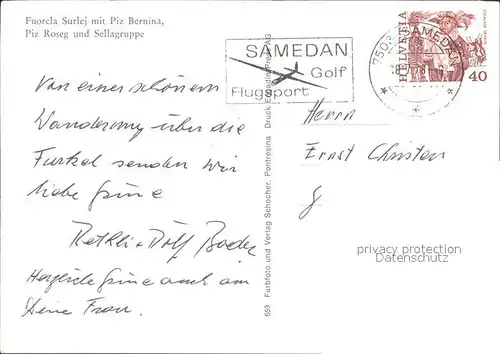 Fuorcla Surlej mit Piz Bernina,
Piz Roseg und Sellagruppe
Von einer schönen
Wanderung über die
Furkel senden wir
liebe Grüse
Dölf
Herzliche Grüse auch an
Deine Frau.
659 Farbfoto und Verlag Schocher, Pontresina Druck AG
SAMEDAN
Golf
Flugsport
SAMEDAN
HELVETIA
40
Herrn
Ernst Christen
privacy protection
Datenschutz